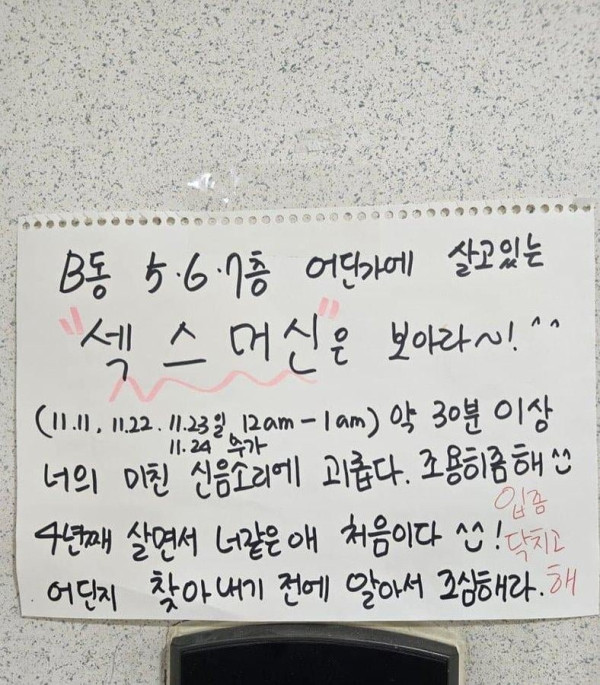 B동 5.6.7층 어딘가에 살고있는
"섹스머신"은 보아라~! ^^
(11.11, 11.22. 11.23일 12am - 1am) 약 30분 이상
11.24 추가
너의 미친 신음소리에 괴롭다. 조용히좀해^^
4년째 살면서 너같은애 처음이다 ^^!
어딘지 찾아내기 전에 알아서 조심해라.
입좀
닥치고
해